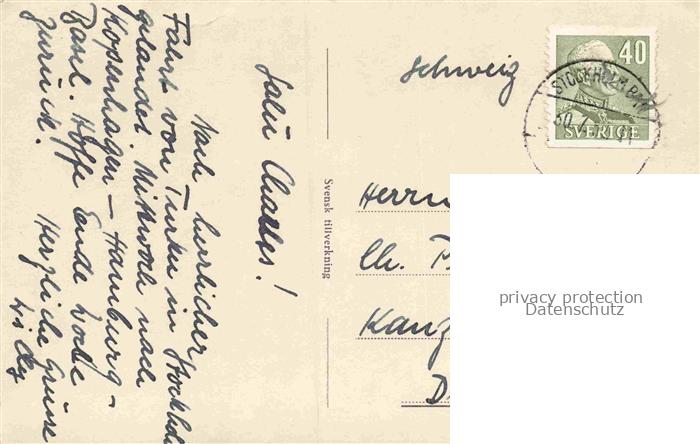 Salü Charles!
Nach herrlicher
Fahrt von Turku in Stockholm
gelandet. Mittwoch nach
Kopenhagen – Hamburg –
Basel. Hoffe Ende Woche
zurück.
Herzliche Grüsse
Svensk tillverkning
Schweiz
40
SVERIGE
STOCKHOLM
Herrn
Ch.
Kanz
D
privacy protection
Datenschutz